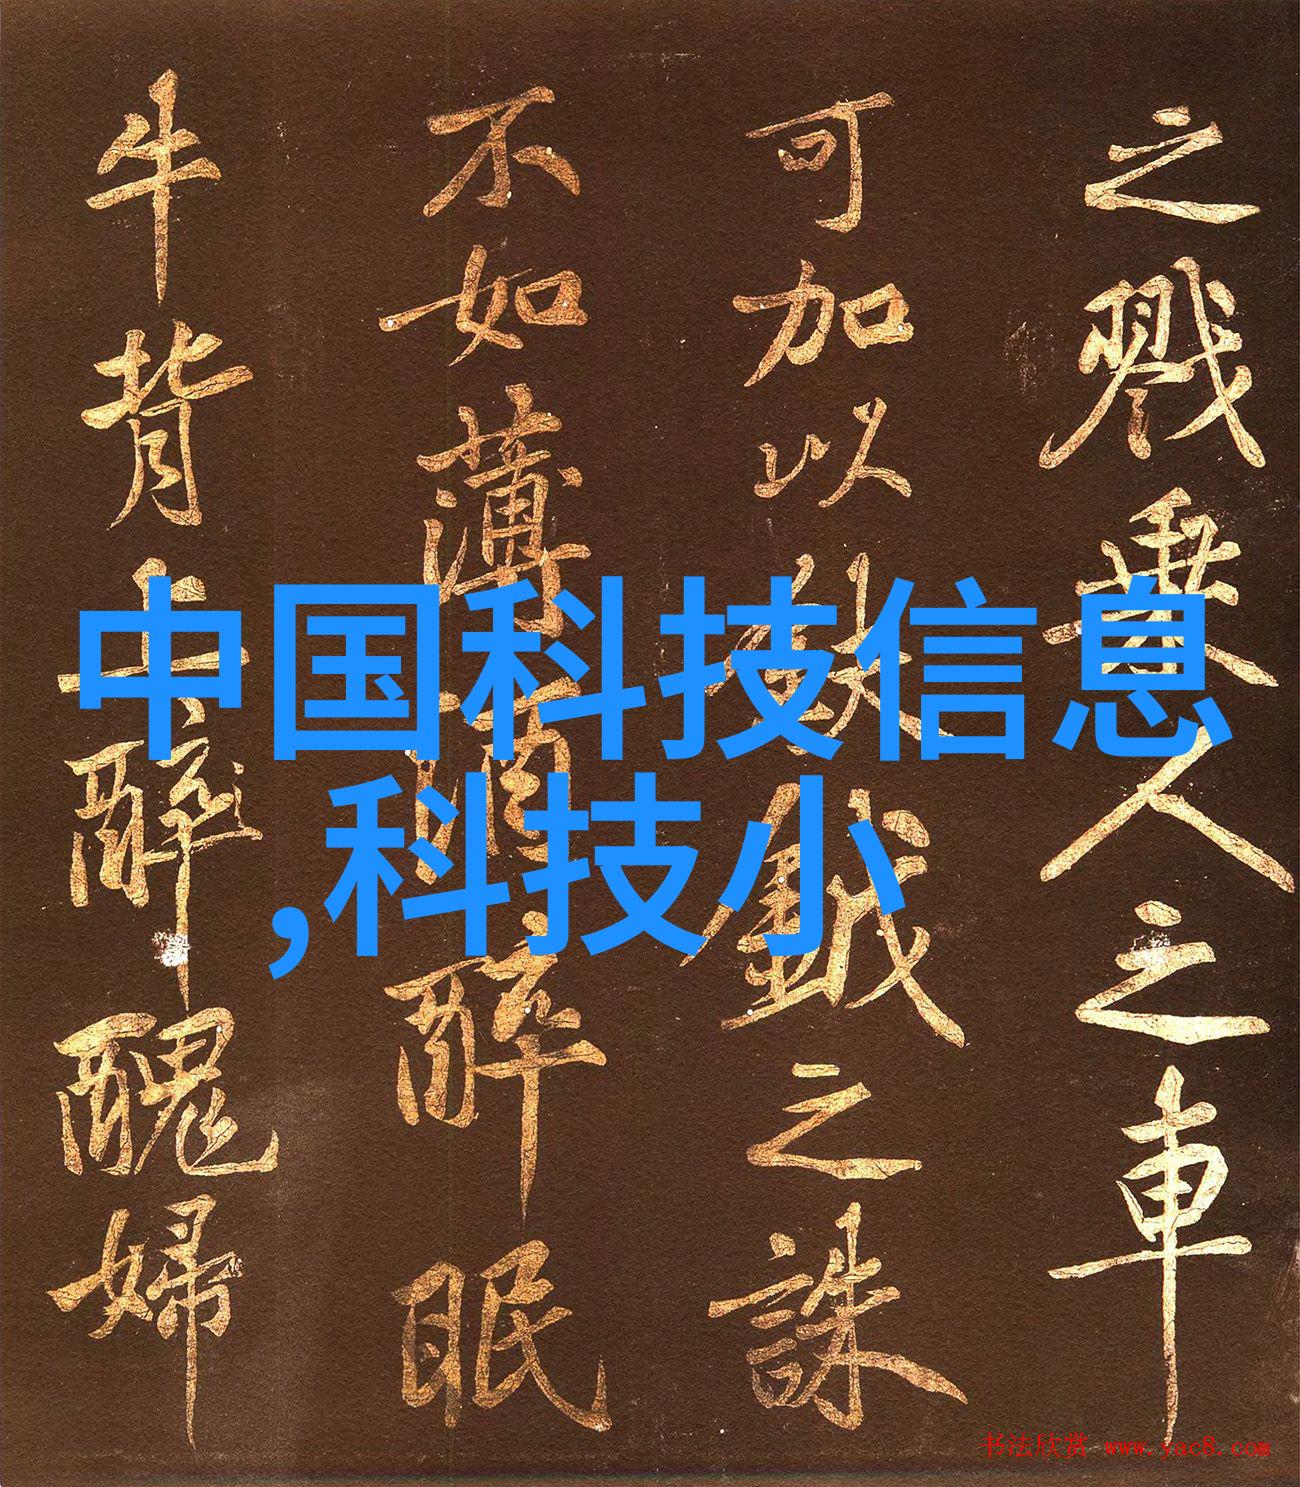 之戮乘人之車
可加以鈇鉞之誅
不如薄酒醉眠
牛背上醉醜婦
中国科技信息
,科技小
书法欣赏 www.yac8.com